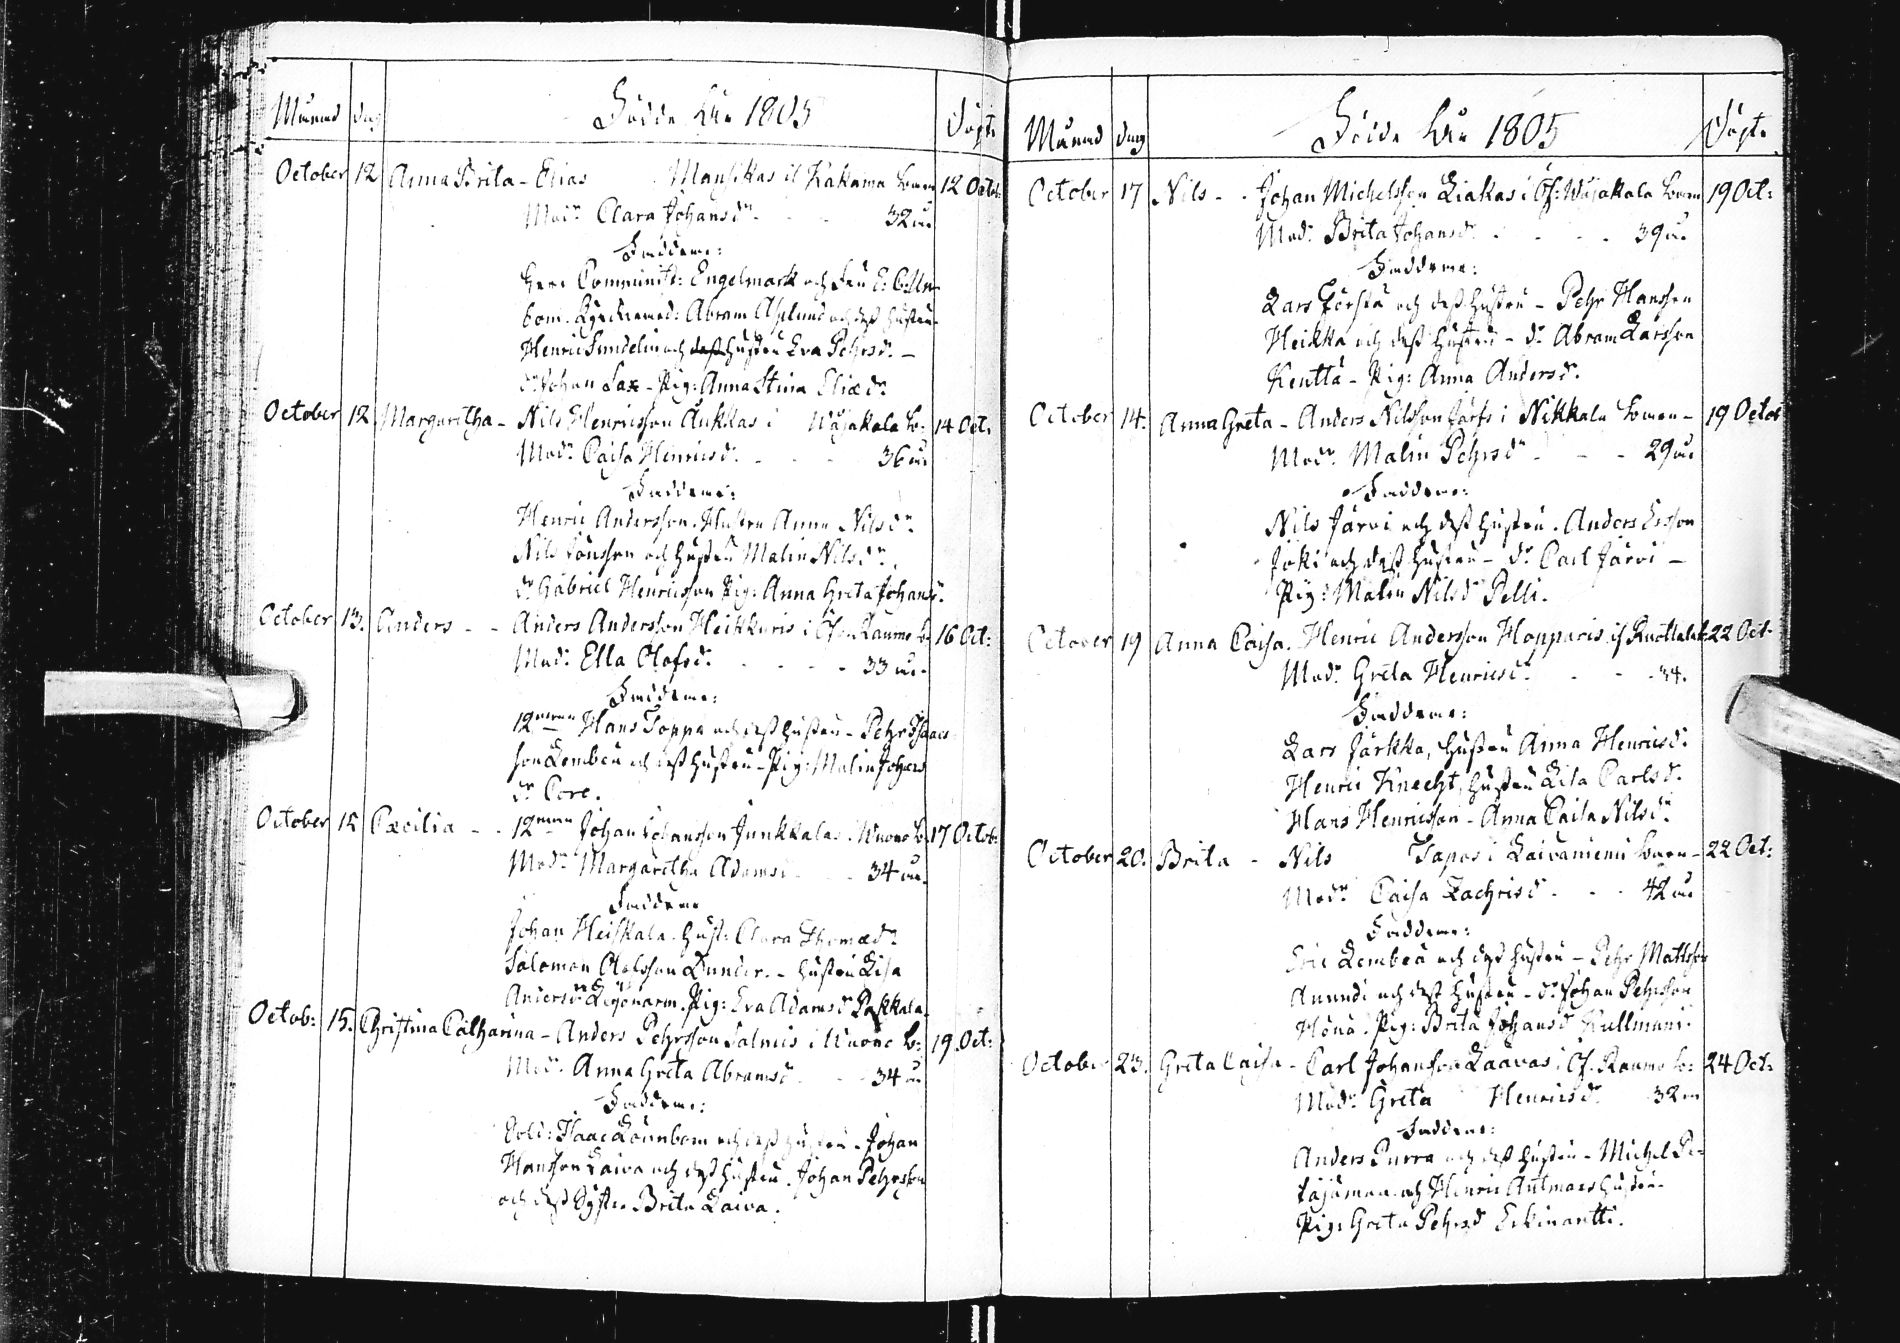 Månad dag Födde År 1805 Döpt.
October 12 Anna Brita - Elias Mansikas if Kakama barn 12 Octob:
Modr. Clara Johansdr. - - - 32 år
Faddrar:
Herr Comminist: Engelmark och Fru E: C: Un
bom. Abram Asplund och dess hustru.
Henric Sundelin och dess hustru Eva Pehrsdr. -
dr Johan Lax - Pig: Anna Stina Eliædr
October 12. Margaretha - Nils Henricsson Aukkas i Wojakala b: 14 Oct:
Modr. Caisa Henricsdr. - - - 36 år
Faddrar:
Henric Andersson. Hustru Anna Nilsdr.
Nils Jönsson och hustru Malin Nilsdr.
dr. Gabriel Henricsson Pig: Anna Greta Johansdr.
October 13. Anders - - Anders Andersson Heikkuris i Öfre Raumo b: 16 Oct:
Modr. Ella Olofsdr. - - - 33 år.
Faddrar:
12man Hans Toppa och dess hustru - Pehr Isaacs
son Lembeu och dess hustru - Pig: Malin Johans
dr. Core.
October 15 Cæcilia - - 12man Johan Johansson Junkkalas i Wuono b. 17 Octob:
Modr. Margaretha Adamsd. - - 34 år.
Faddrar
Johan Heiskala. Hust: Clara Thomædr.
Salomon Olofsson Dunder. - hustru Lisa
Andersdr Pig: Eva Adamsdr Pakkala.
Octob: 15. Christina Catharina - Anders Pehrsson Salmis i Wuono b: 19 Oct:
Modr. Anna Greta Abramsd. - - 34 år
Faddrar:
Sold: Isaac Lönnbom och dess hustru. Johan
Hansson Laiva och dess hustru. Johan Pehrsson
och dess Syster Brita Laiva.
Månad dag Födde År 1805 Döpt.
October 17 Nils - - Johan Michelsson Liakas i Öf: Wojakala barn 19 Oct:
Modr. Brita Johansdr. - - - 39 år
Faddrar:
Lars Förstä och dess hustru - Pehr Hansson
Heikka och dess hustru - dr. Abram Larsson
Kenttä - Pig: Anna Andersdr.
October 14. Anna Greta - Anders Nilsson Järfs i Nikkala barn - 19 Octob
Modr. Malin Pehrsdr - - - 29 år
Faddrar:
Nils Järvi och dess hustru. Anders Ersson
Joki och dess hustru - dr. Carl Järvi -
Pig: Malin Nilsdr Pelli.
October 19 Anna Caisa. Henric Andersson Hopparis if 22 Oct.
Modr. Greta Henricsdr. - - - 34.
Faddrar:
Lars Järkka, hustru Anna Henricsdr.
Henric Knecht, hustru Lisa Carlsdr.
Hans Henricsson - Anna Caisa Nilsdr.
October 20. Brita - Nils Tapos i Laivaniemi barn - 22 Oct:
Modr. Caisa Zachrisdr - - - 42 år
Faddrar:
Eric Lembeä och dess hustru - Pehr Mattsson
Anundi och dess hustru - dr. Johan Pehrsson
Pig: Brita Johansdr Kullmani.
October 23. Greta Caisa - Carl Johansson Laavas i Öf. Raumo b: 24 Oct:
Modr. Greta Henricsdr. 32 år
Faddrar:
Anders Purra och dess hustru - Michel Pe-
täjämaa och Henric Autmaas hustru -
Pig: Greta Pehrsdr Erkinantti.